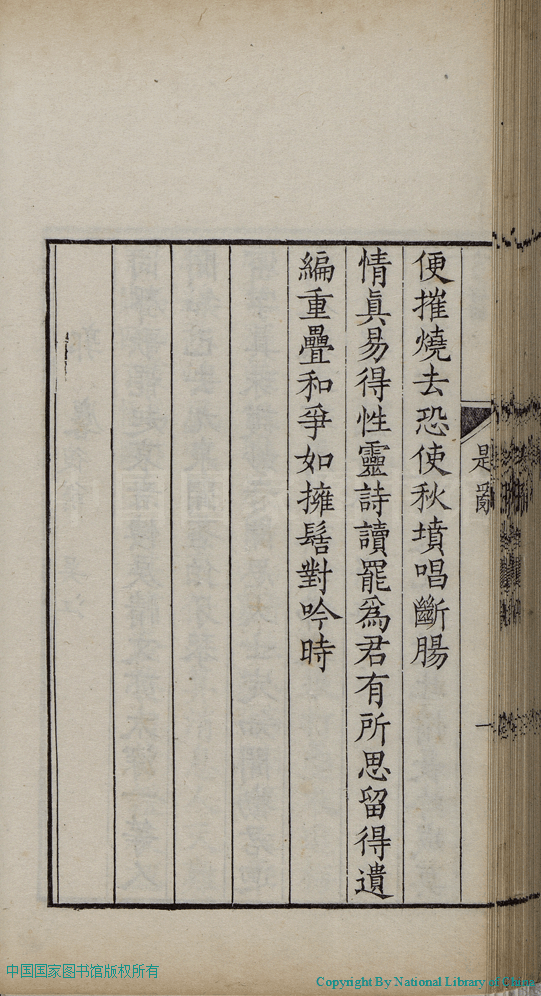 便摧燒去恐使秋墳唱斷腸
情眞易得性靈詩讀罷爲君有所思留得遺
編重疊和爭如擁髻對吟時
一
中国国家图书馆版权所有
Copyright By National Library of